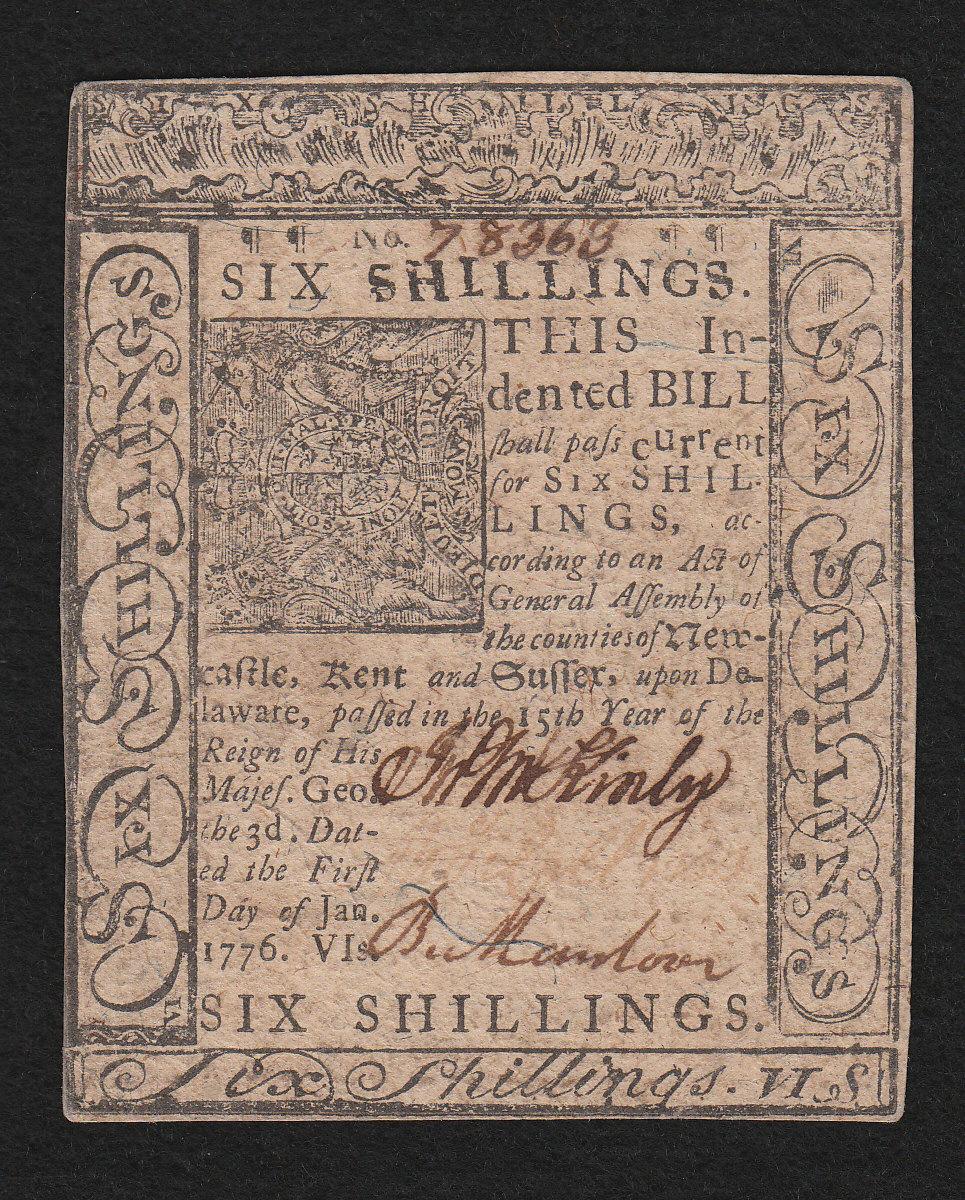 SIX SHILLINGS
No. 78363
SIX SHILLINGS.
THIS In-
dented BILL
ſhall paſs current
for SIX SHIL-
LINGS, ac-
cording to an Act of
General Aſſembly of
the counties of New-
caſtle, Kent and Suſſex, upon De-
laware, paſſed in the 15th Year of the
Reign of His
Majeſ. Geo.
the 3d. Dat-
ed the Firſt
Day of Jan.
1776. VIs.
Jno McKinly
SIX SHILLINGS.
DIEU ET MON DROIT
SIX SHILLINGS
VI
SIX SHILLINGS
Six Shillings. VI S